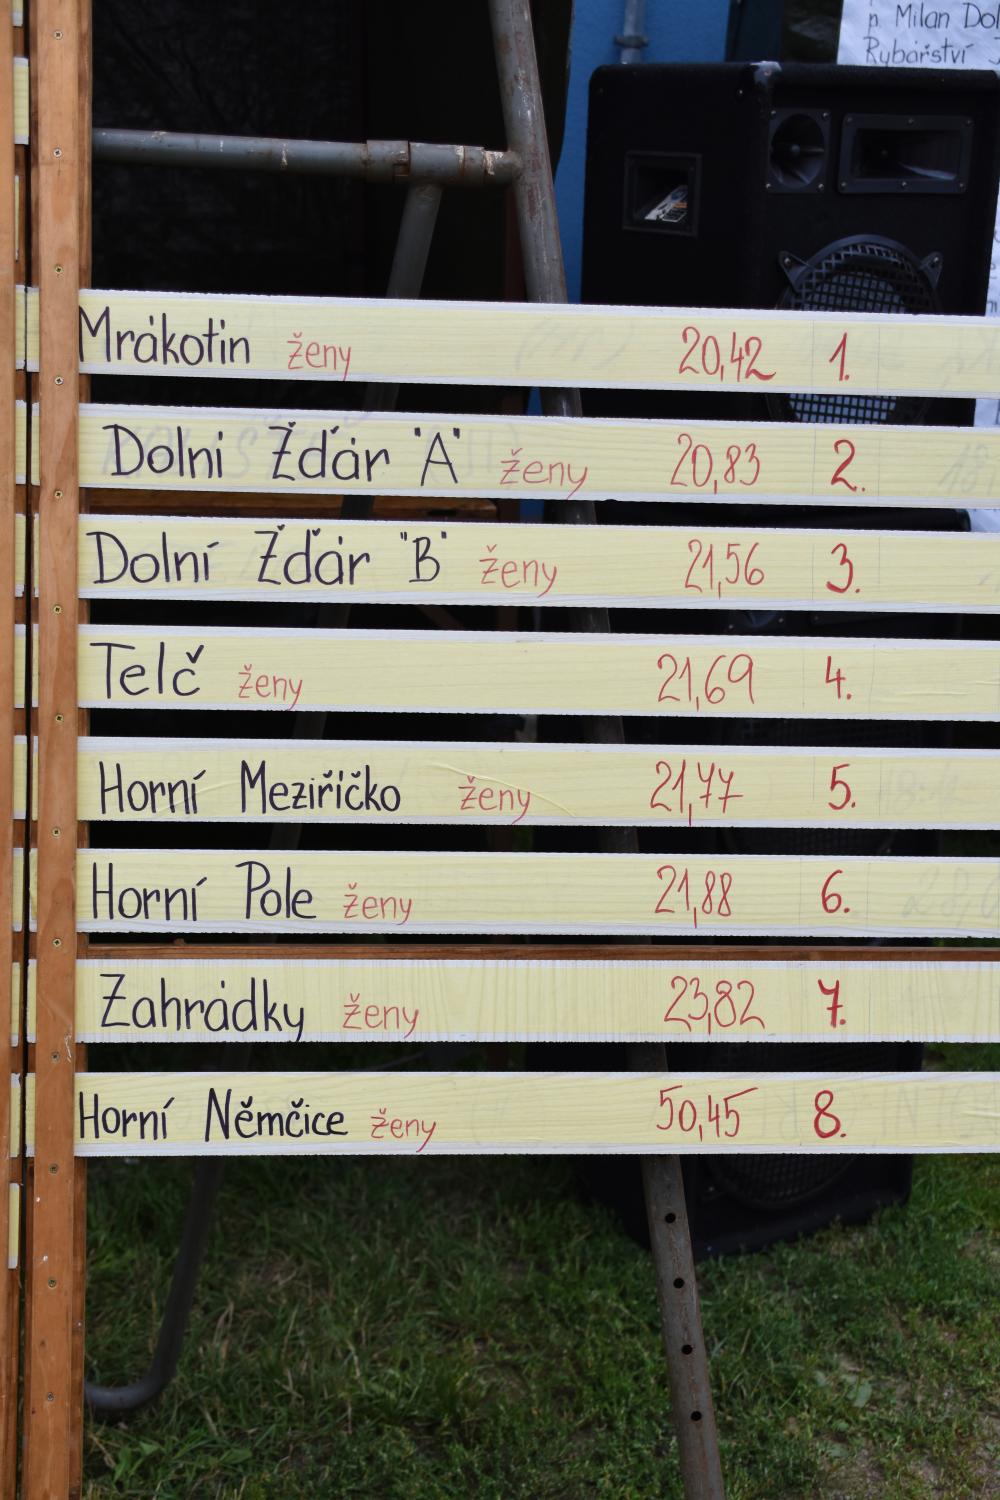 p. Milan Dol
Rybářství J
Mrákotin ženy 20,42 1.
Dolni Žďár "A" ženy 20,83 2.
Dolní Žďár "B" ženy 21,56 3.
Telč ženy 21,69 4.
Horní Meziříčko ženy 21,77 5.
Horní Pole ženy 21,88 6.
Zahrádky ženy 23,82 7.
Horní Němčice ženy 50,45 8.